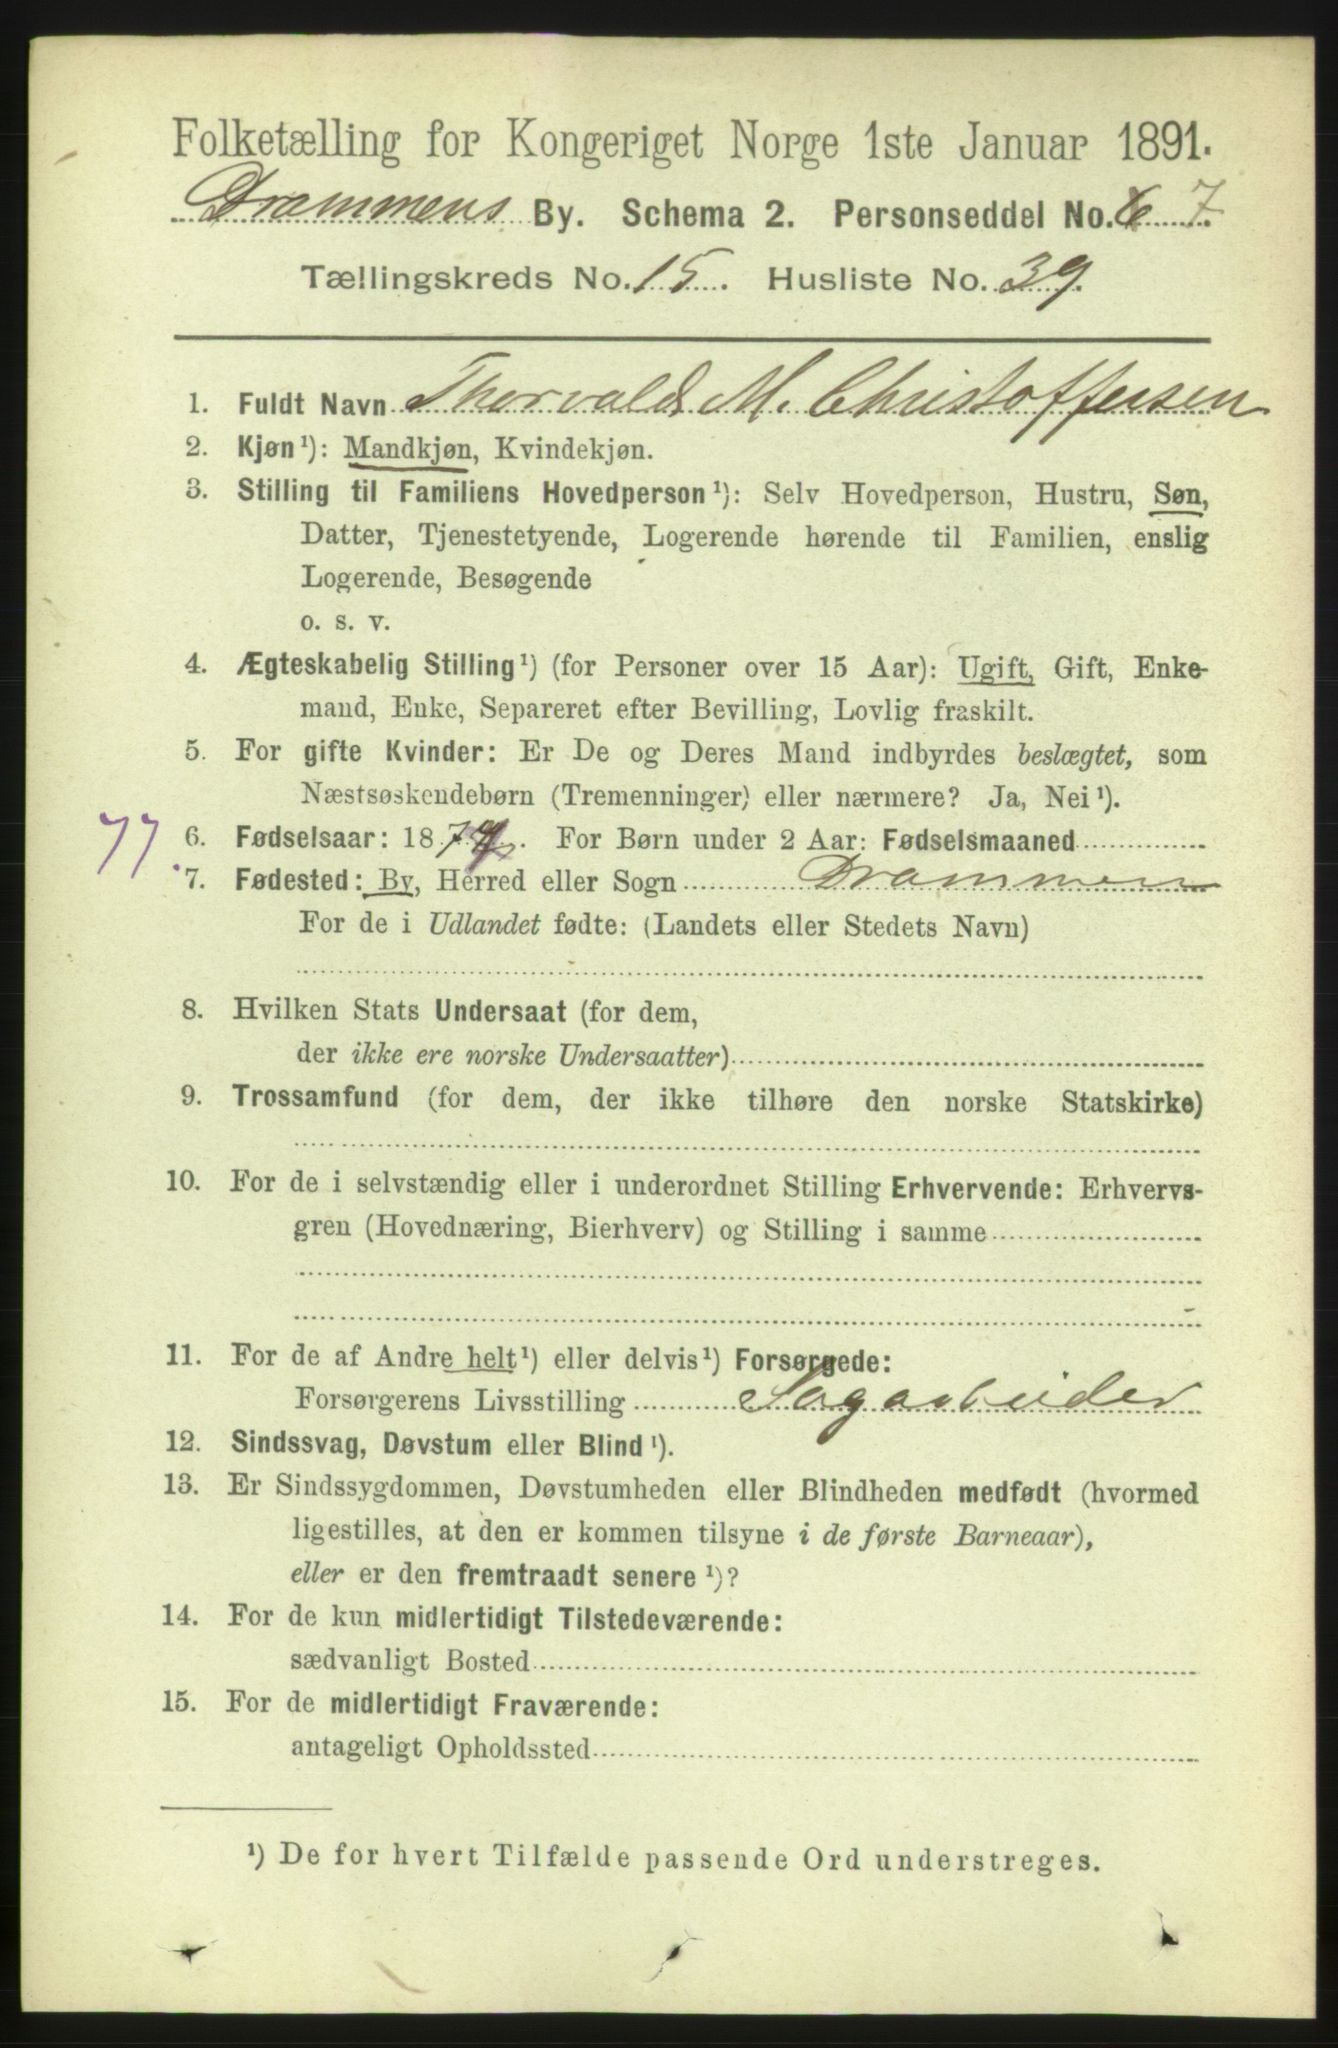 Folketælling for Kongeriget Norge 1ste Januar 1891.
Drammens By. Schema 2. Personseddel No. 6 7.
Tællingskreds No. 15. Husliste No. 39.
1. Fuldt Navn Thorvald M. Christoffersen
2. Kjøn¹): Mandkjøn, Kvindekjøn.
3. Stilling til Familiens Hovedperson¹): Selv Hovedperson, Hustru, Søn,
Datter, Tjenestetyende, Logerende hørende til Familien, enslig
Logerende, Besøgende
o. s. v.
4. Ægteskabelig Stilling¹) (for Personer over 15 Aar): Ugift, Gift, Enke-
mand, Enke, Separeret efter Bevilling, Lovlig fraskilt.
5. For gifte Kvinder: Er De og Deres Mand indbyrdes beslægtet, som
Næstsøskendebørn (Tremenninger) eller nærmere? Ja, Nei¹).
77.
6. Fødselsaar: 187 . For Børn under 2 Aar: Fødselsmaaned
7. Fødested: By, Herred eller Sogn Drammen
For de i Udlandet fødte: (Landets eller Stedets Navn)
8. Hvilken Stats Undersaat (for dem,
der ikke ere norske Undersaatter)
9. Trossamfund (for dem, der ikke tilhøre den norske Statskirke)
10. For de i selvstændig eller i underordnet Stilling Erhvervende: Erhvervs-
gren (Hovednæring, Bierhverv) og Stilling i samme
11. For de af Andre helt¹) eller delvis¹) Forsørgede:
Forsørgerens Livsstilling Sagarbeider
12. Sindssvag, Døvstum eller Blind¹).
13. Er Sindssygdommen, Døvstumheden eller Blindheden medfødt (hvormed
ligestilles, at den er kommen tilsyne i de første Barneaar),
eller er den fremtraadt senere¹)?
14. For de kun midlertidigt Tilstedeværende:
sædvanligt Bosted
15. For de midlertidigt Fraværende:
antageligt Opholdssted
¹) De for hvert Tilfælde passende Ord understreges.